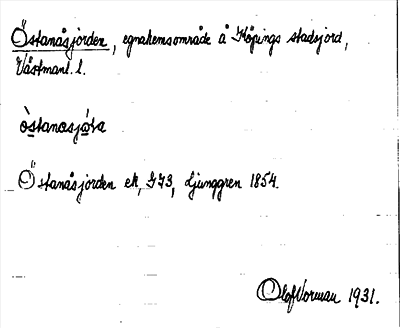 Östanåsjorden, egnahemsområde å Köpings stadsjord,
Västmanl. l.
östanosjo̱ɽa
Östanåsjorden ek, GJ3, Ljunggren 1854.
Olof Vorman 1931.